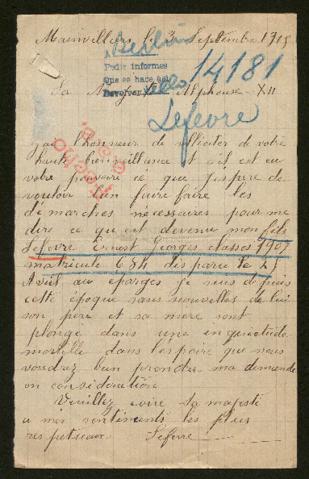 Mainvilliers le 3 Septembre 1915
Berlin
Pedir informes
Que se hace así
Devolver
14181
Sa Majesté Alphonse XIII
Lefevre
j'ai l'honneur de solliciter de votre
haute bienveillance et s'il est en
votre pouvoir ce que j'espère de
vouloir bien faire faire les
démarches nécessaires pour me
dire ce qu'est devenu mon fils
Lefevre Ernest Georges classe 1907
matricule disparu le
Avril aux eparges je suis depuis
cette époque sans nouvelles de lui
son père et sa mere sont
plongé dans une inquiétude
mortelle dans l'espoire que vous
voudrez bien prendre ma demande
en considération
Veuillez croire sa majesté
a mes sentiments les plus
respectueux Lefevre